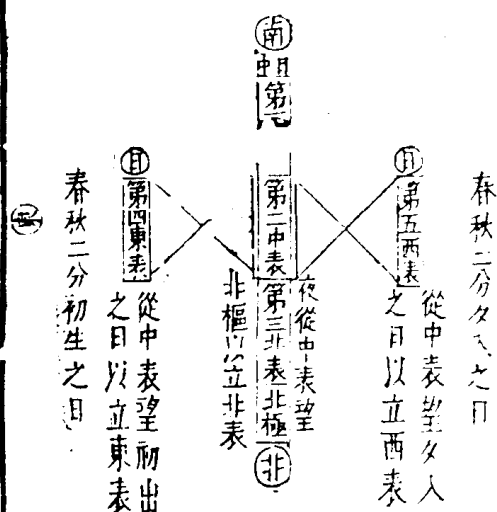 春秋二分夕入之日
日
第五西表
從中表望夕入
之日以立西表
南
日中
第一
第二中表
第三北表
北極
夜從中表望
北樞以立北表
北
日
第四東表
從中表望初出
之日以立東表
春秋二分初生之日